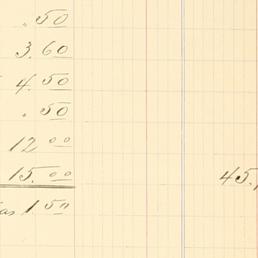 .50
3.60
4.50
.50
12 00
15.00 45.
1 50